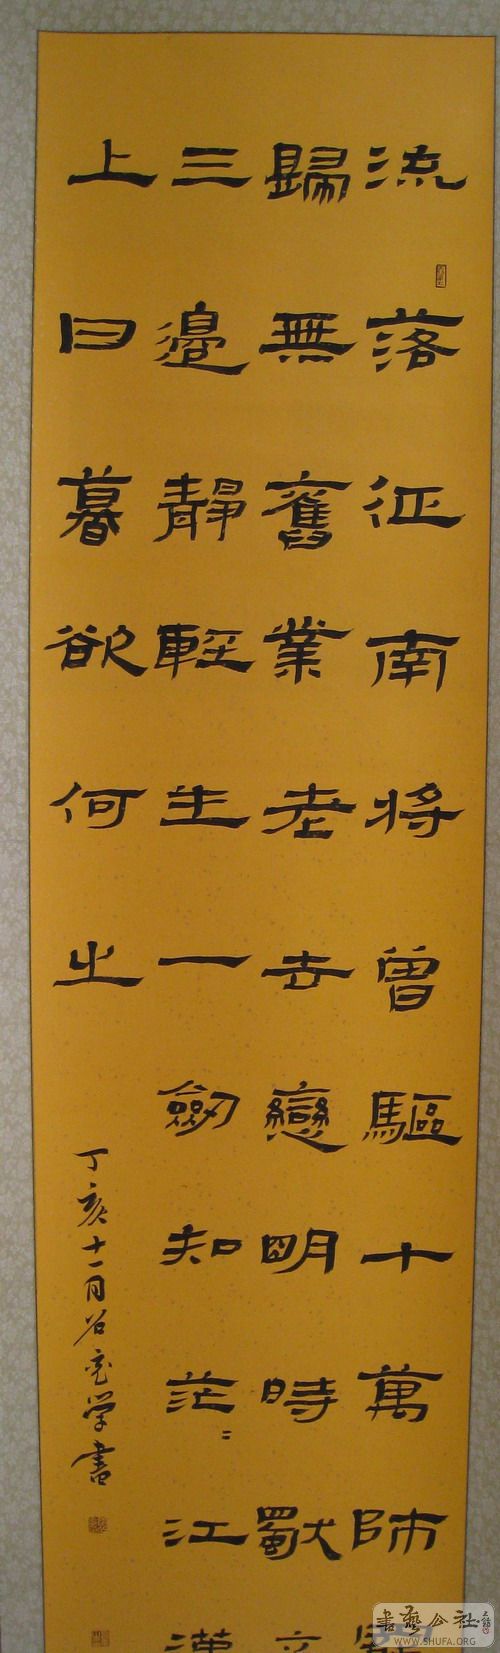 流落征南將曾驅十萬師罷
歸無舊業老去戀明時獨立
三邊靜輕生一劒知茫〻江漢
上日暮欲何之
丁亥十一月谷 学書
書藝公社
WWW.SHUFA.ORG